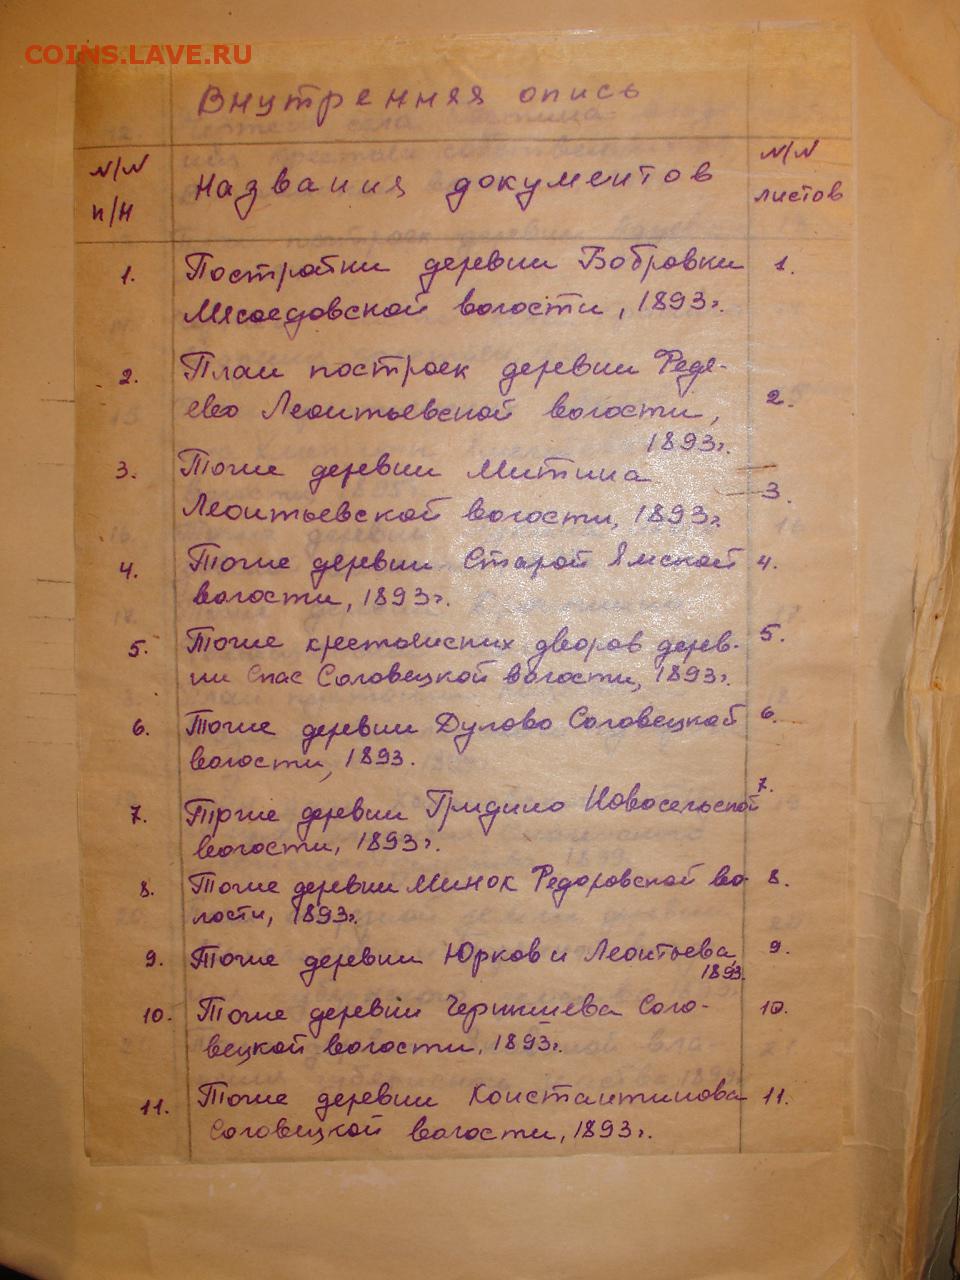 COINS.LAVE.RU
Внутренняя опись
N/N п/н
Названия документов
N/N листов
1. Постройки деревни Бобровки 1.
Мясоедовской волости, 1893г.
2. План построек деревни Феде-
ево Леонтьевской волости, 2.
1893г.
3. Тоже деревни Митина
Леонтьевской волости, 1893г. 3.
4. Тоже деревни Старой Ямской 4.
волости, 1893г.
5. Тоже крестьянских дворов дерев- 5.
ни Спас Соловецкой волости, 1893г.
6. Тоже деревни Дулово Соловецкой 6.
волости, 1893.
7. Тоже деревни Гридино Новосельской 7.
волости, 1893г.
8. Тоже деревни Минок Федоровской во- 8.
лости, 1893г.
9. Тоже деревни Юрков и Леонтьева, 9.
1893.
10. Тоже деревни Чернышева Соло- 10.
вецкой волости, 1893г.
11. Тоже деревни Константинова 11.
Соловецкой волости, 1893г.